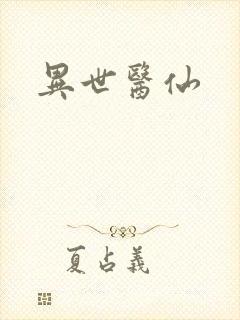 異世醫仙
夏占義